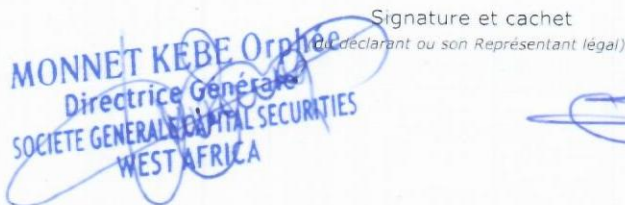 Signature et cachet
(du déclarant ou son Représentant légal)
MONNET KEBE Orphée
Directrice Générale
SOCIETE GENERALE CAPITAL SECURITIES
WEST AFRICA